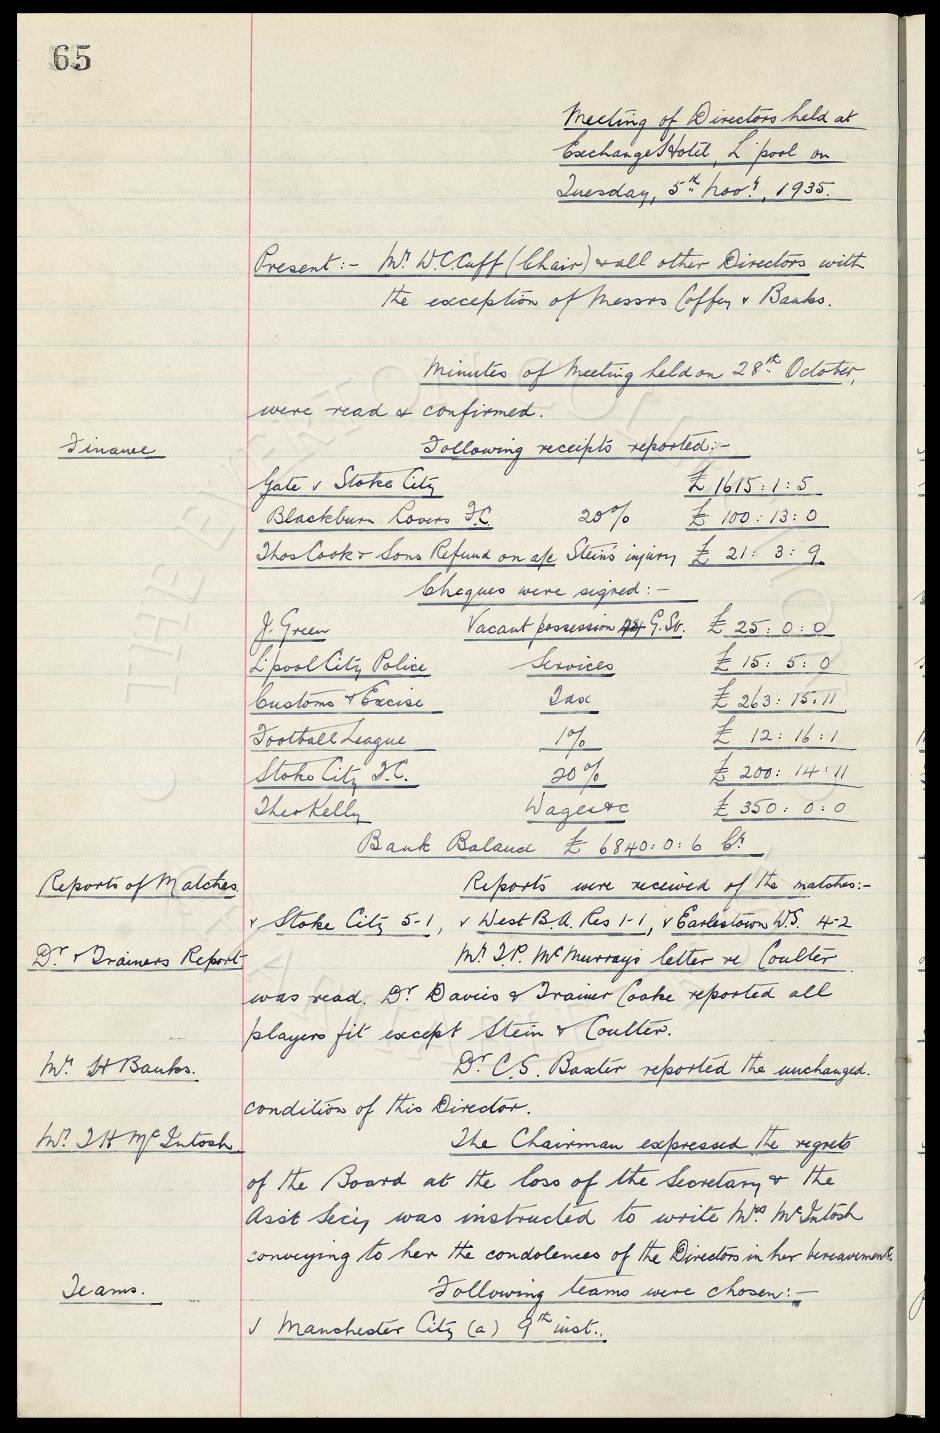 65
Meeting of Directors held at
Exchange Hotel, L'pool on
Tuesday, 5th Novr., 1935.
Present:- Mr. W.C. Cuff (Chair) & all other Directors with
the exception of Messrs Coffey & Banks.
Minutes of Meeting held on 28th October,
were read & confirmed.
Finance Following receipts reported:-
Gate v Stoke City £ 1615:1:5
Blackburn Rovers F.C. 20% £ 100:13:0
Thos Cook & Sons Refund on a/c Stein's injury £ 21:3:9
Cheques were signed:-
J. Green Vacant possession G. Sv. £ 25:0:0
L'pool City Police Services £ 15:5:0
Customs & Excise Tax £ 263:15:11
Football League 1% £ 12:16:1
Stoke City F.C. 20% £ 200:14:11
Theo Kelly Wages &c £ 350:0:0
Bank Balance £ 6840:0:6 Cr
Reports of Matches Reports were received of the matches:-
v Stoke City 5-1, v West B.A. Res 1-1, v Earlestown W.S. 4-2
Dr. & Trainers Report Mr T.P. McMurray's letter re Coulter
was read. Dr Davies & Trainer Cooke reported all
players fit except Stein & Coulter.
Mr. H Banks. Dr C.S. Baxter reported the unchanged
condition of this Director.
Mr. T H McIntosh The Chairman expressed the regrets
of the Board at the loss of the Secretary & the
Asst Secy was instructed to write Mrs McIntosh
conveying to her the condolences of the Directors in her bereavement.
Teams. Following teams were chosen:-
v Manchester City (a) 9th inst..
THE EVERTON COLLECTION